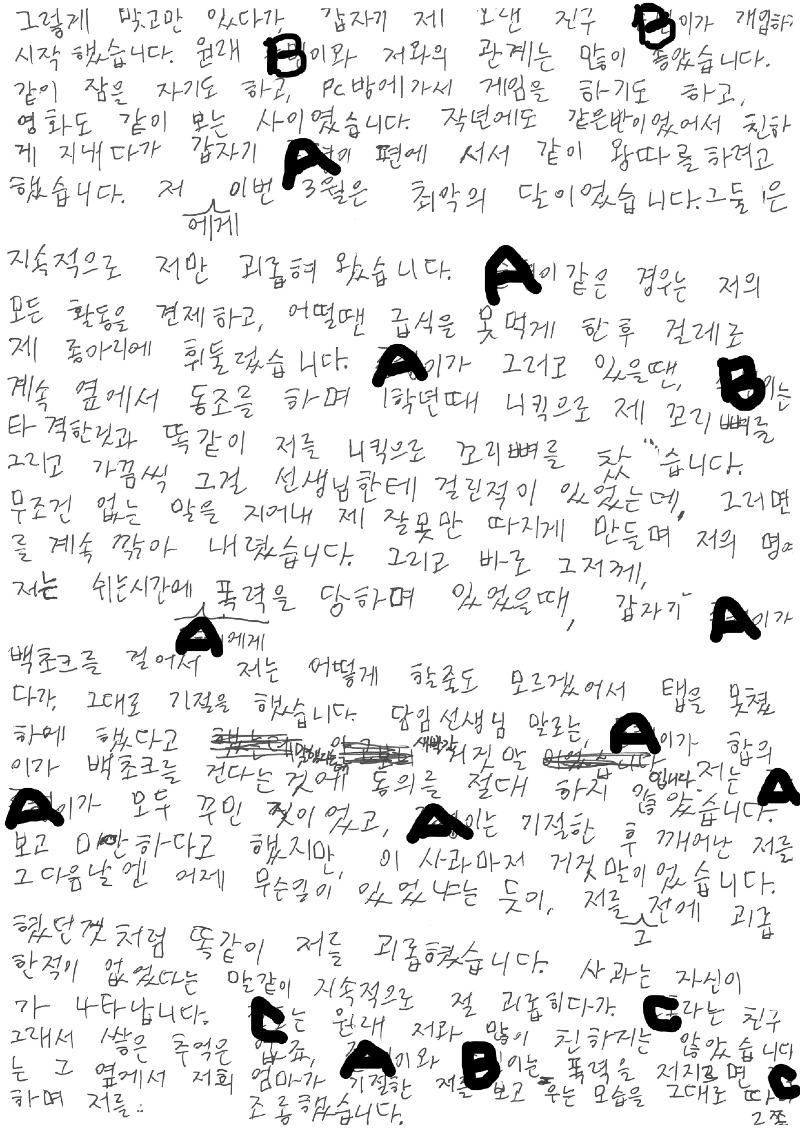 그렇게 맞고만 있다가, 갑자기 제 친구 B이가 개입하
시작 했습니다. 원래 B이와 저와의 관계는 많이 좋았습니다.
같이 잠을 자기도 하고, PC방에가서 게임을 하기도 하고,
영화도 같이 보는 사이였습니다. 작년에도 같은반이었어서 친하
게 지내다가 갑자기 A이 편에 서서 같이 왕따를 하려고
했습니다. 저 이번 3월은 최악의 달이었습니다. 그들은
에게
지속적으로 저만 괴롭혀 왔습니다. A이같은 경우는 저의
모든 활동을 견제하고, 어떨땐 급식을 못먹게 한후 걸레로
제 종아리에 휘둘렀습니다. A이가 그러고 있을땐, B이는
계속 옆에서 동조를 하며 1학년때 니킥으로 제 꼬리뼈를
타격한것과 똑같이 저를 니킥으로 꼬리뼈를 찼습니다.
그리고 가끔씩 그걸 선생님한테 걸린적이 있었는데, 그러면
무조건 없는 말을 지어내 제 잘못만 따지게 만들며 저의 명예
를 계속 깎아 내렸습니다. 그리고 바로 그저께,
저는 쉬는시간에 폭력을 당하며 있었을때, 갑자기 A이가
A에게
백초크를 걸어서 저는 어떻게 할줄도 모르겠어서 탭을 못쳤
다가, 그대로 기절을 했습니다. 담임선생님 말로는, A이가 합의
하에 했다고 새빨간 거짓말 입니다. 저는
이가 백초크를 건다는것에 동의를 절대 하지 않았습니다. A
A이가 모두 꾸민 짓이었고, A이는 기절한 후 깨어난 저를
보고 미안하다고 했지만, 이 사과마저 거짓말이었습니다.
그다음날엔 어제 무슨일이 있었냐는 듯이, 저를 전에 괴롭
그
혔던것처럼 똑같이 저를 괴롭혔습니다. 사과는 자신이
한적이 없었다는 말같이 지속적으로 절 괴롭히다가, C라는 친구
가 나타납니다. C는 원래 저와 많이 친하지는 않았습니다
그래서 쌓은 추억은 없죠, A이와 B이는 폭력을 저지르면 C
는 그 옆에서 저희 엄마가 기절한 저를 보고 우는 모습을 그대로 따
하며 저를 조롱했습니다.
2쪽